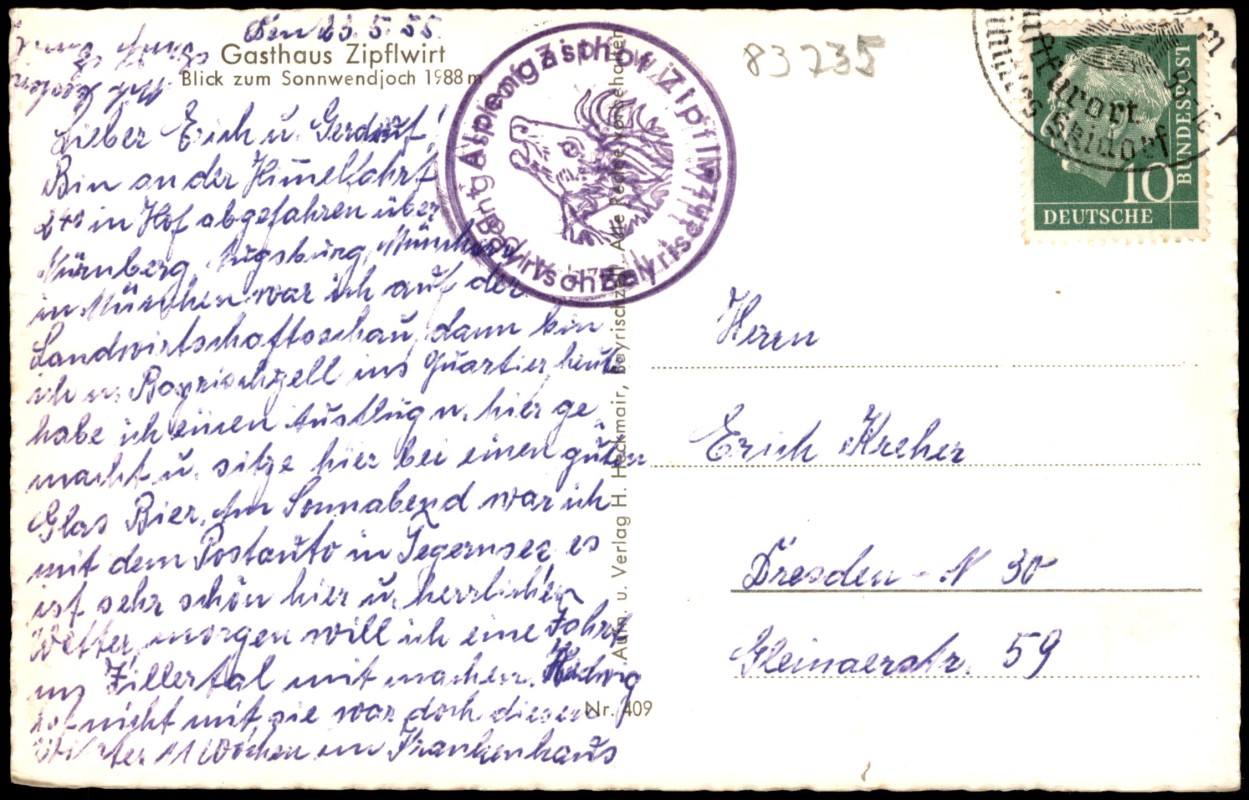 Den 23.5.55.
Gasthaus Zipflwirt
Blick zum Sonnwendjoch 1988 m
Lieber Erich u. Gertrut!
Bin an der Himelfahrt
in Hof abgefahren über
Nürnberg, Augsburg, München
in München war ich auf der
Landwirtschaftsschau, dann bin
ich in Bayrischzell ins Quartier, heute
habe ich einen Ausflug n. hier ge
macht u. sitze hier bei einen guten
Glas Bier. Am Sonnabend war ich
mit dem Postauto in Tegernsee, es
ist sehr schön hier u. herrlichen
Wetter, morgen will ich eine Fahrt
ins Zillertal mit machen. Hedwig
ist nicht mit, sie war doch diesen
Winter 11 Wochen im Krankenhaus
Alpengasthof Zipflwirt
Bayrischzell
Aufn. u. Verlag H. Heckmair, Bayrischzell, Alle Rechte vorbehalten
Nr. 409
83235
Luftkurort
DEUTSCHE
BUNDESPOST
10
Herrn
Erich Kreher
Dresden - N 30
Gleinaerstr. 59